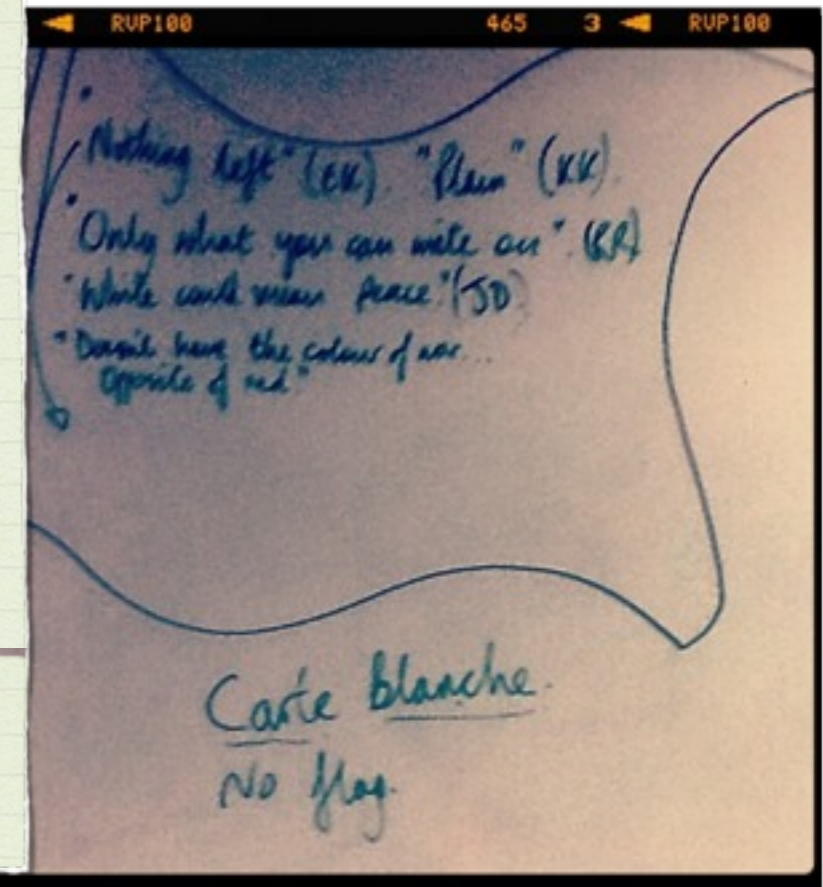 RVP100 465 3 RVP100
"Nothing left" (EK). "Plain" (KK).
"Only what you can write on". (RR)
"White could mean peace." (JD)
"Doesn't have the colour of war...
Opposite of red"
Carte Blanche.
No flag.